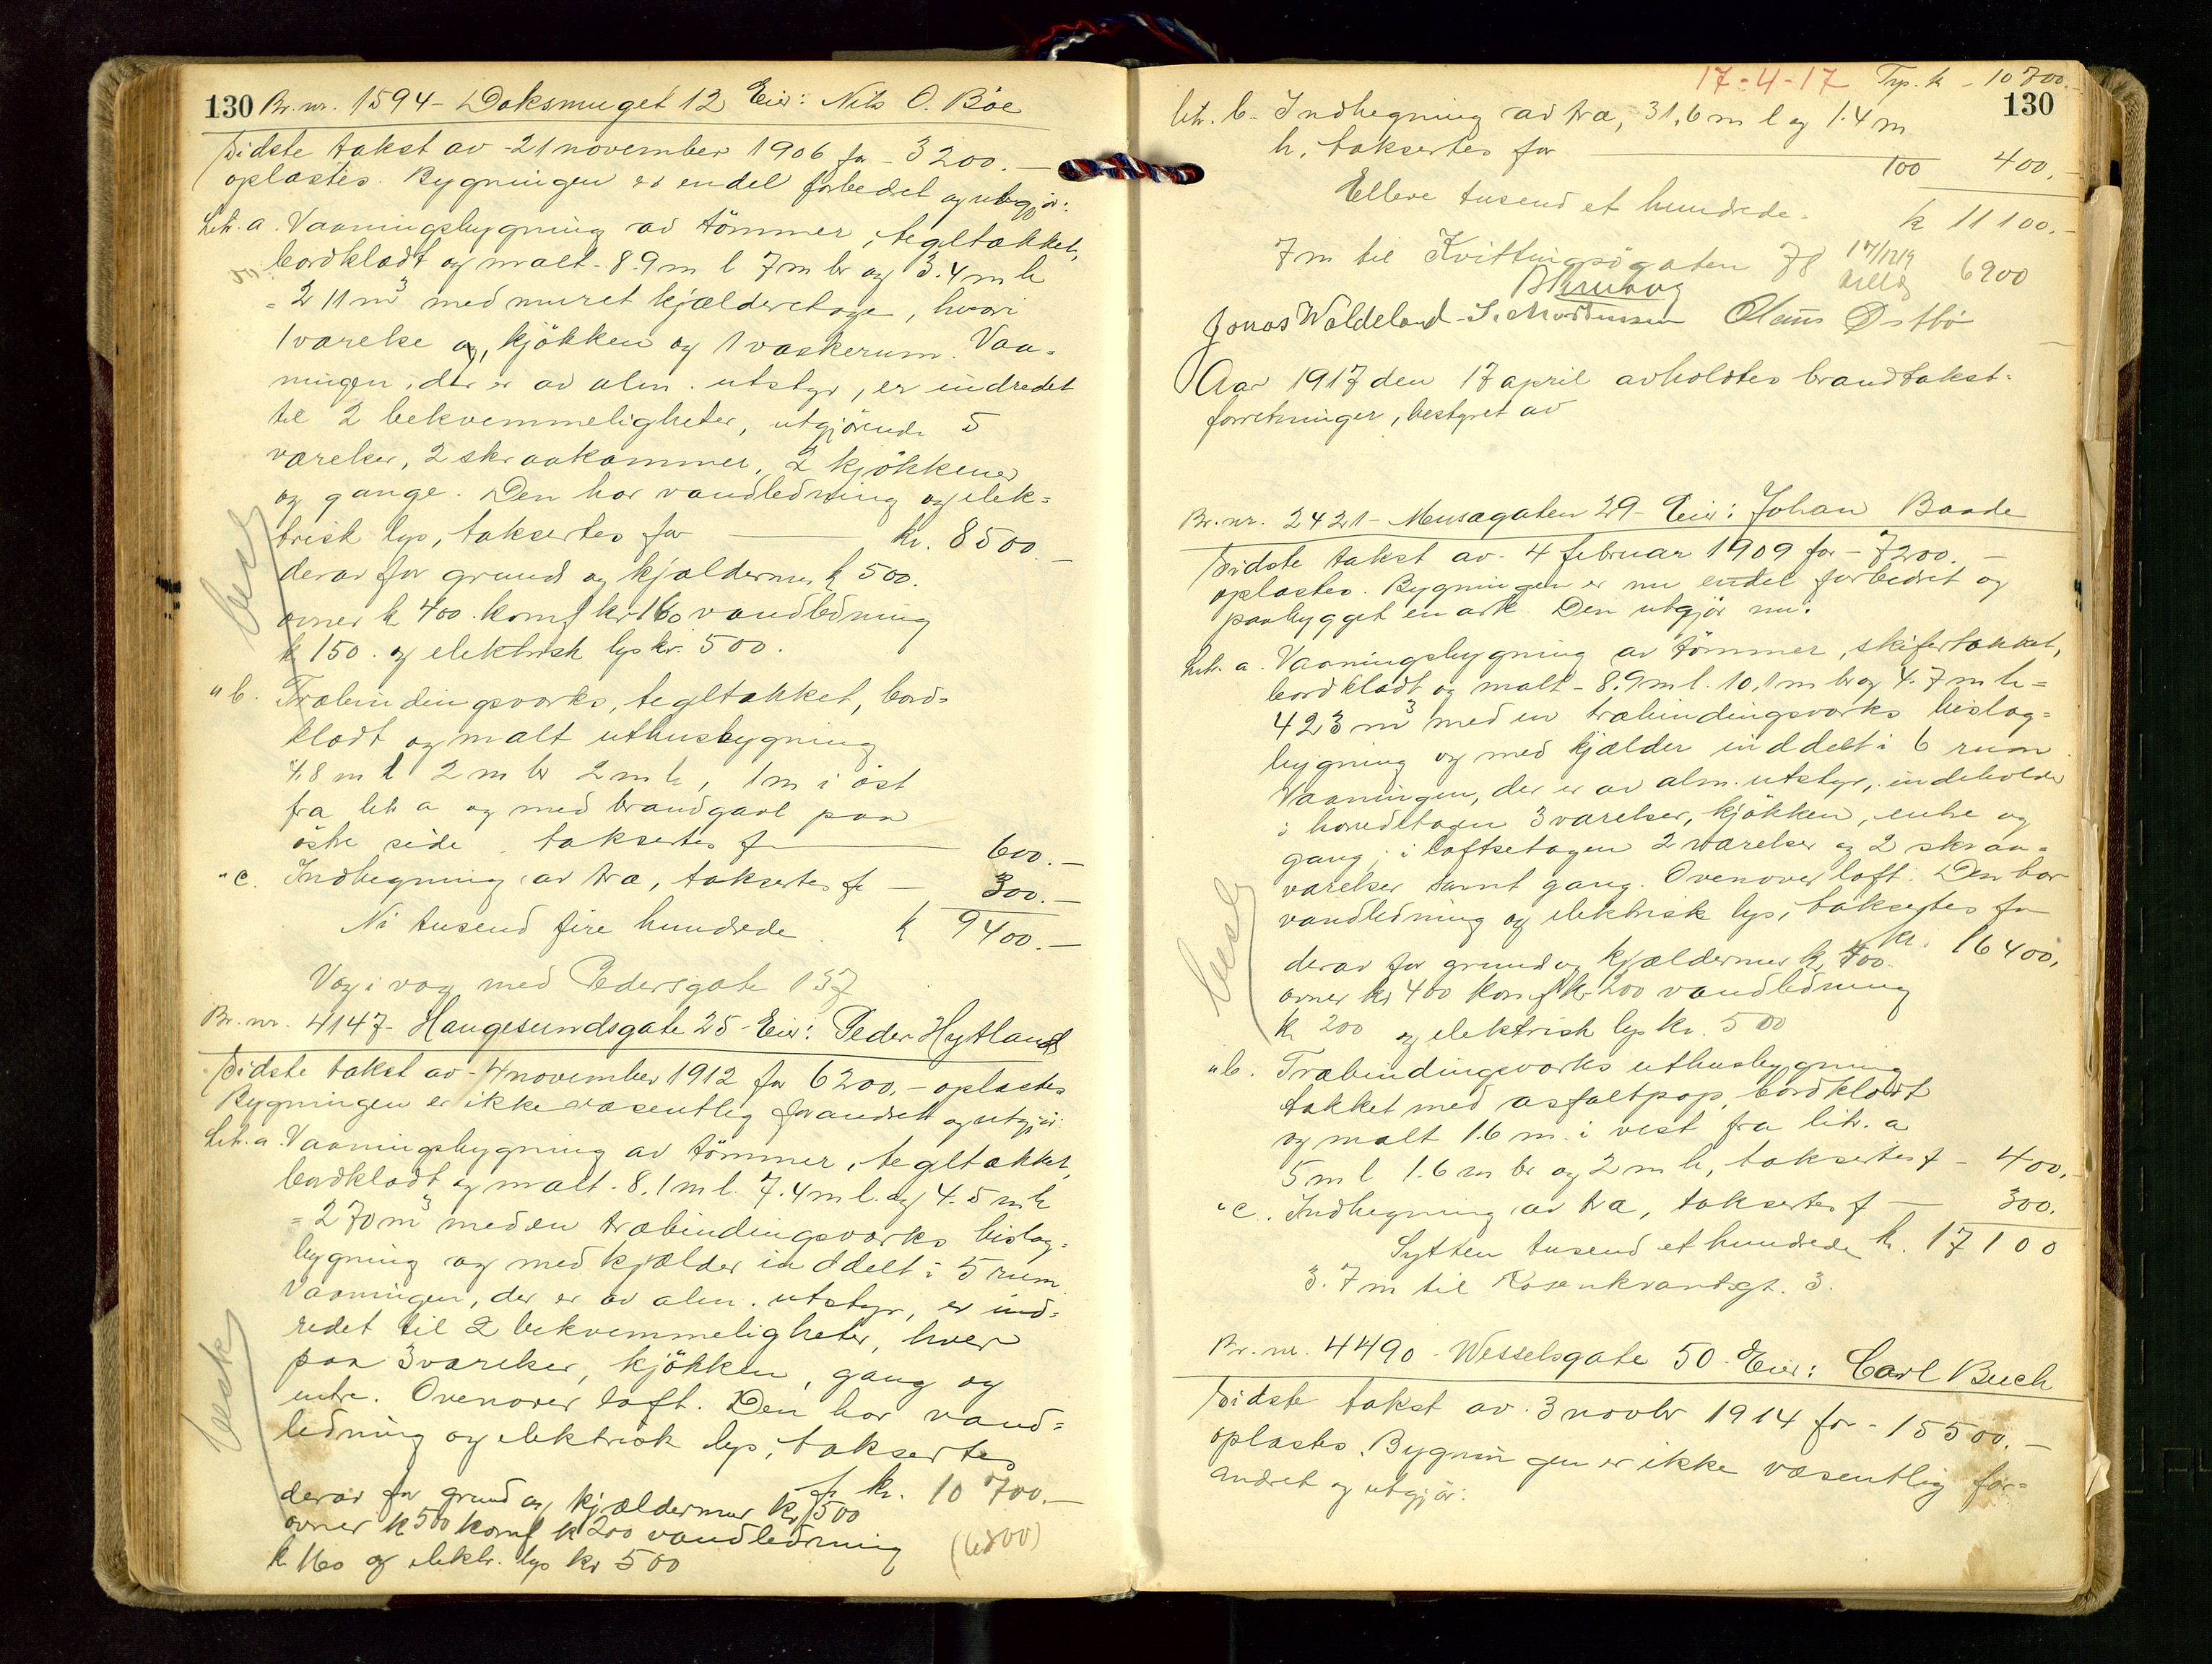 130 Br. nr. 1594 - Doksmuget 12 Eier: Nils O. Böe
Sidste takst av - 21 november 1906 for - 3200. -
oplæstes. Bygningen er endel forbedret og utgjør:
Litr. a. Vaaningsbygning av tömmer, tegltækket,
bordklædt og malt - 8.9 m l 7 m br og 3.4 m h
= 211 m³ med muret kjælderetage, hvori
1 værelse og kjökken og 1 vaskerum. Vaa-
ningen, der er av alm. utstyr, er indredet
til 2 bekvemmeligheter, utgjörende 5
værelser, 2 skraakammer, 2 kjökkener
og gange. Den har vandledning og elek-
trisk lys, taksertes for kr. 8500. -
derav for grund og kjældermur k 500.
ovner k 400. komf kr 160 vandledning
k 150. og elektrisk lys kr. 500.
besk
" b. Træbindingsværks, tegltækket, bord-
klædt og malt uthusbygning
4,8 m l 2 m br 2 m h, 1 m i öst
fra litr a og med brandgavl paa
östre side. taksertes f 600. -
" c. Indhegning av træ, taksertes for - 300. -
Ni tusend fire hundrede k 9400. -
Væg i væg med Pedersgate 137
Br. nr. 4147 - Haugesundsgate 25 - Eier: Peder Hytland
Sidste takst av - 4 november 1912 for 6200, - oplæstes
Bygningen er ikke væsentlig forandret og utgjør:
Litr. a. Vaaningsbygning av tömmer, tegltækket,
bordklædt og malt - 8.1 m l. 7.4 m l. og 4.5 m h
= 270 m³ med en træbindingsværks bislag-
bygning og med kjælder inddelt i 5 rum
Vaaningen, der er av alm. utstyr, er ind-
redet til 2 bekvemmeligheter, hver
paa 3 værelser, kjökken, gang og
entre. Ovenover loft. Den har vand-
ledning og elektrisk lys, taksertes
for kr. 10 700. -
derav for grund og kjældermur kr 500
ovner k 500 komf k 200 vandledning
k 160 og elektr. lys kr 500
(6800)
besk
17-4-17 Trp. k - 10 700. -
130
litr. b. Indhegning av træ, 31,6 m l og 1.4 m
h, taksertes for 100 400. -
Elleve tusend et hundrede. k 11 100. -
7 m til Kvittingsögaten 78 17/1219 6900
Jonas Waldeland - S. Mortensen Olaus Östbö
Aar 1917 den 17 april avholdtes brandtakst-
forretninger, bestyret av
Br. nr. 2421 - Musagaten 29 - Eier: Johan Baade
Sidste takst av - 4 februar 1909 for - 7200. -
oplæstes. Bygningen er nu endel forbedret og
paabygget en ark. Den utgjör nu:
Litr. a. Vaaningsbygning av tömmer, skifertækket,
bordklædt og malt - 8.9 m l. 10,1 m br og 4.7 m h =
423 m³ med en træbindingsværks bislag-
bygning og med kjælder inddelt i 6 rum.
Vaaningen, der er av alm. utstyr, indeholder
i hovedetagen 3 værelser, kjökken, entre og
gang; i loftsetagen 2 værelser og 2 skraa-
værelser samt gang. Ovenover loft. Den har
vandledning og elektrisk lys, taksertes for
kr. 16 400,
derav for grund og kjældermur k, 700.
ovner kr 400 komf k 200 vandledning
k 200 og elektrisk lys kr. 500
besk
" b. Træbindingsværks uthusbygning
tækket med asfaltpap, bordklædt
og malt 1.6 m i vest fra litr. a
5 m l 1.6 m br og 2 m h, taksertes f - 400. -
" c. Indhegning av træ, taksertes f - 300.
Sytten tusend et hundrede k. 17 100
3.7 m til Rosenkrantzgt. 3.
Br. nr. 4490 - Wesselsgate 50 - Eier: Carl Buch
Sidste takst av. 3 novbr 1914 for - 15500. -
oplæstes. Bygningen er ikke væsentlig for-
andret og utgjör: